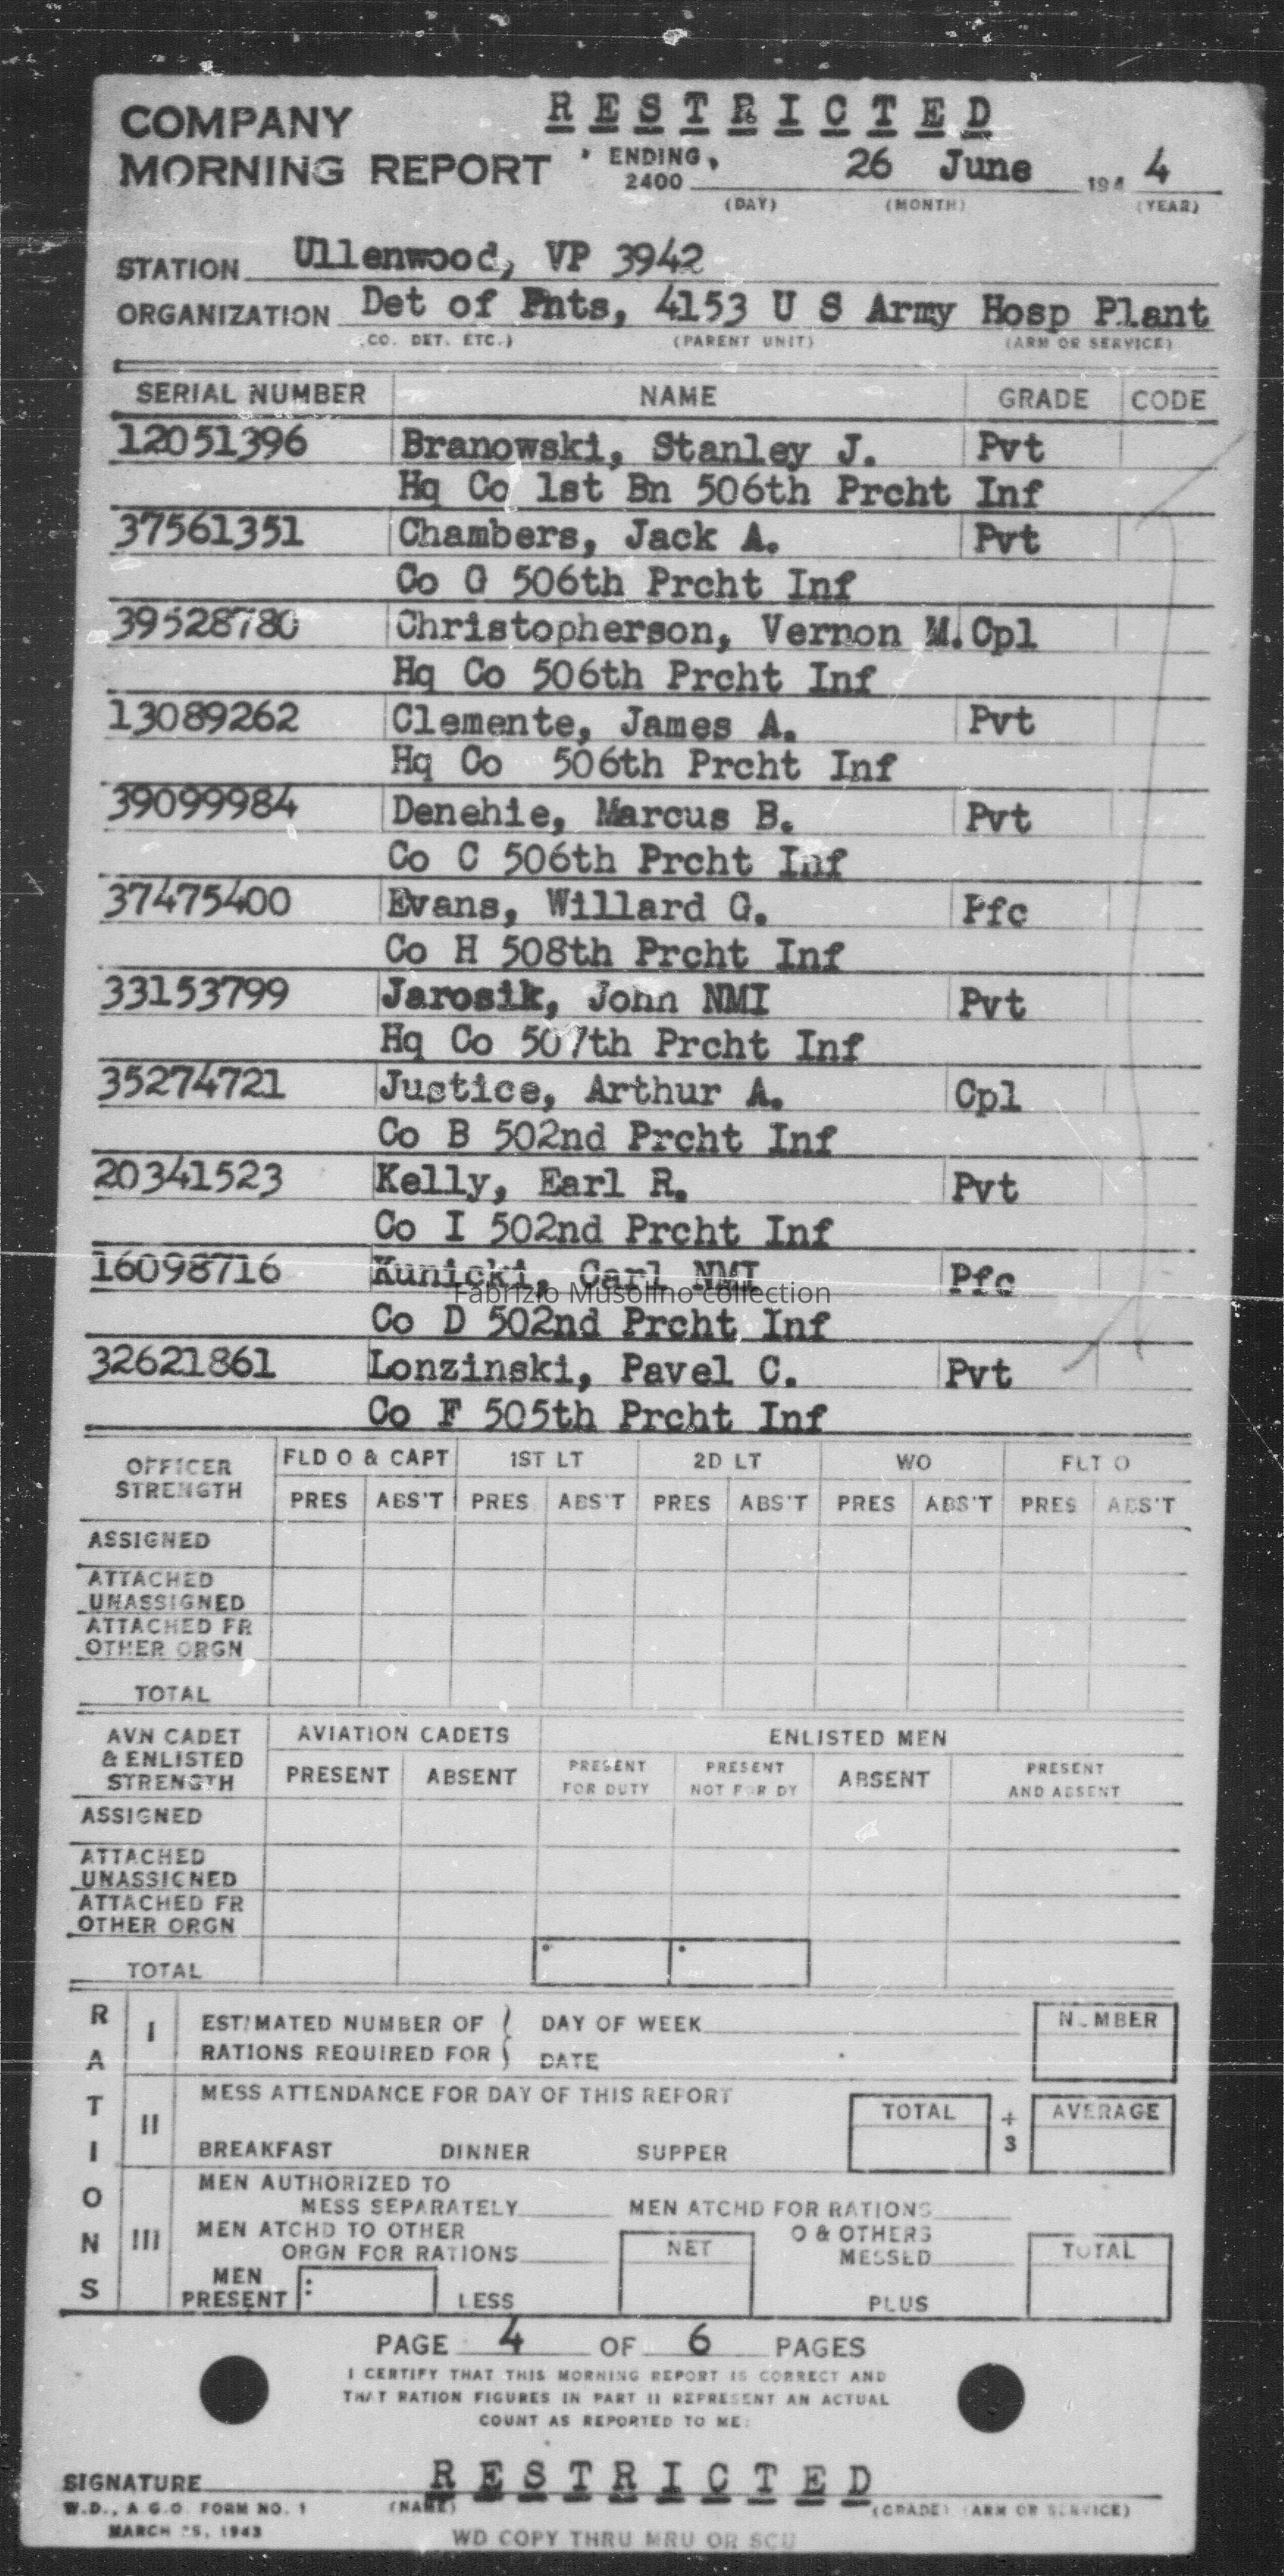 RESTRICTED
COMPANY
MORNING REPORT ENDING 2400 26 June 194 4
(DAY) (MONTH) (YEAR)
STATION Ullenwood, VP 3942
ORGANIZATION Det of Pnts, 4153 U S Army Hosp Plant
CO. DET. ETC.) (PARENT UNIT) (ARM OR SERVICE)
SERIAL NUMBER NAME GRADE CODE
12051396 Branowski, Stanley J. Pvt
Hq Co 1st Bn 506th Prcht Inf
37561351 Chambers, Jack A. Pvt
Co G 506th Prcht Inf
39528780 Christopherson, Vernon M. Cpl
Hq Co 506th Prcht Inf
13089262 Clemente, James A. Pvt
Hq Co 506th Prcht Inf
39099984 Denehie, Marcus B. Pvt
Co C 506th Prcht Inf
37475400 Evans, Willard G. Pfc
Co H 508th Prcht Inf
33153799 Jarosik, John NMI Pvt
Hq Co 507th Prcht Inf
35274721 Justice, Arthur A. Cpl
Co B 502nd Prcht Inf
20341523 Kelly, Earl R. Pvt
Co I 502nd Prcht Inf
16098716 Kunicki, Carl NMI Pfc
Fabrizio Musolino collection
Co D 502nd Prcht Inf
32621861 Lonzinski, Pavel C. Pvt
Co F 505th Prcht Inf
OFFICER STRENGTH FLD O & CAPT 1ST LT 2D LT WO FLT O
PRES ABS'T PRES ABS'T PRES ABS'T PRES ABS'T PRES ABS'T
ASSIGNED
ATTACHED
UNASSIGNED
ATTACHED FR
OTHER ORGN
TOTAL
AVN CADET
& ENLISTED
STRENGTH
AVIATION CADETS ENLISTED MEN
PRESENT ABSENT PRESENT FOR DUTY PRESENT NOT FOR DY ABSENT PRESENT AND ABSENT
ASSIGNED
ATTACHED
UNASSIGNED
ATTACHED FR
OTHER ORGN
TOTAL
RATIONS
I ESTIMATED NUMBER OF DAY OF WEEK NUMBER
RATIONS REQUIRED FOR DATE
II MESS ATTENDANCE FOR DAY OF THIS REPORT TOTAL ÷ 3 AVERAGE
BREAKFAST DINNER SUPPER
III MEN AUTHORIZED TO
MESS SEPARATELY MEN ATCHD FOR RATIONS
MEN ATCHD TO OTHER O & OTHERS
ORGN FOR RATIONS NET MESSED TOTAL
MEN
PRESENT LESS PLUS
PAGE 4 OF 6 PAGES
I CERTIFY THAT THIS MORNING REPORT IS CORRECT AND
THAT RATION FIGURES IN PART II REPRESENT AN ACTUAL
COUNT AS REPORTED TO ME:
RESTRICTED
SIGNATURE
W.D., A.G.O. FORM NO. 1 (NAME) (GRADE) (ARM OR SERVICE)
MARCH 25, 1943
WD COPY THRU MRU OR SCU